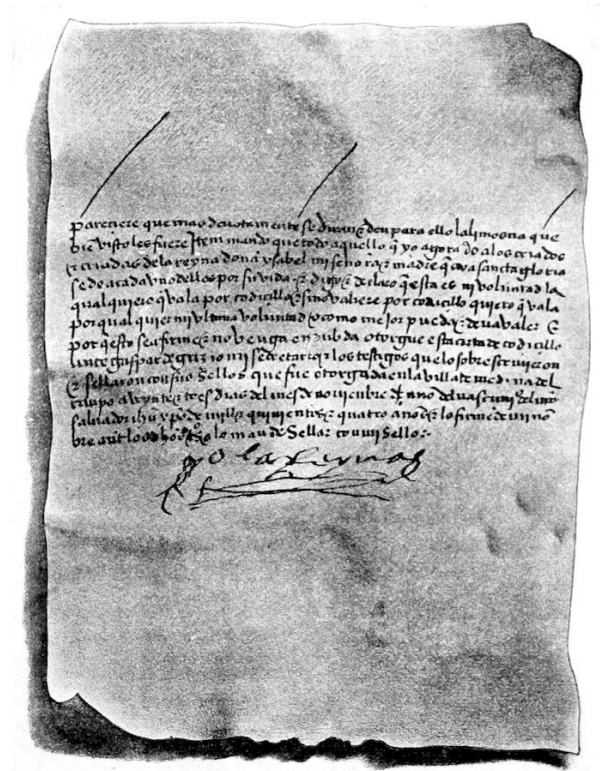 pareciere que mas devotamente se diran z den para ello la limosna que
bie visto les fuere Item mando que todo aquello q yo agora do a los criados
z criadas dela reyna dona ysabel mi señora z madre q aya santa gloria
se do a cada uno dellos por su vida z digo z declaro q esta es mi voluntad la
qual quiero q vala por codicillo z si no valiere por codicillo quiero q vala
por qual quier mi ultima voluntad o como mejor puede z deva valer E
por q esto sea firme z no venga en dubda otorgue esta carta de codicillo
ante gaspar de grizio mi secretario z los testigos que lo sobre scrivieron
z sellaron con sus sellos que fue otorgada en la villa de medina del
campo a veynte z tres dias del mes de noviembre año del nascimi del nro
salvador ihu xpo de mill z quinientos z quatro años z lo firme de mi no
bre ante los testigos z lo mande sellar con mi sello
yo la reyna